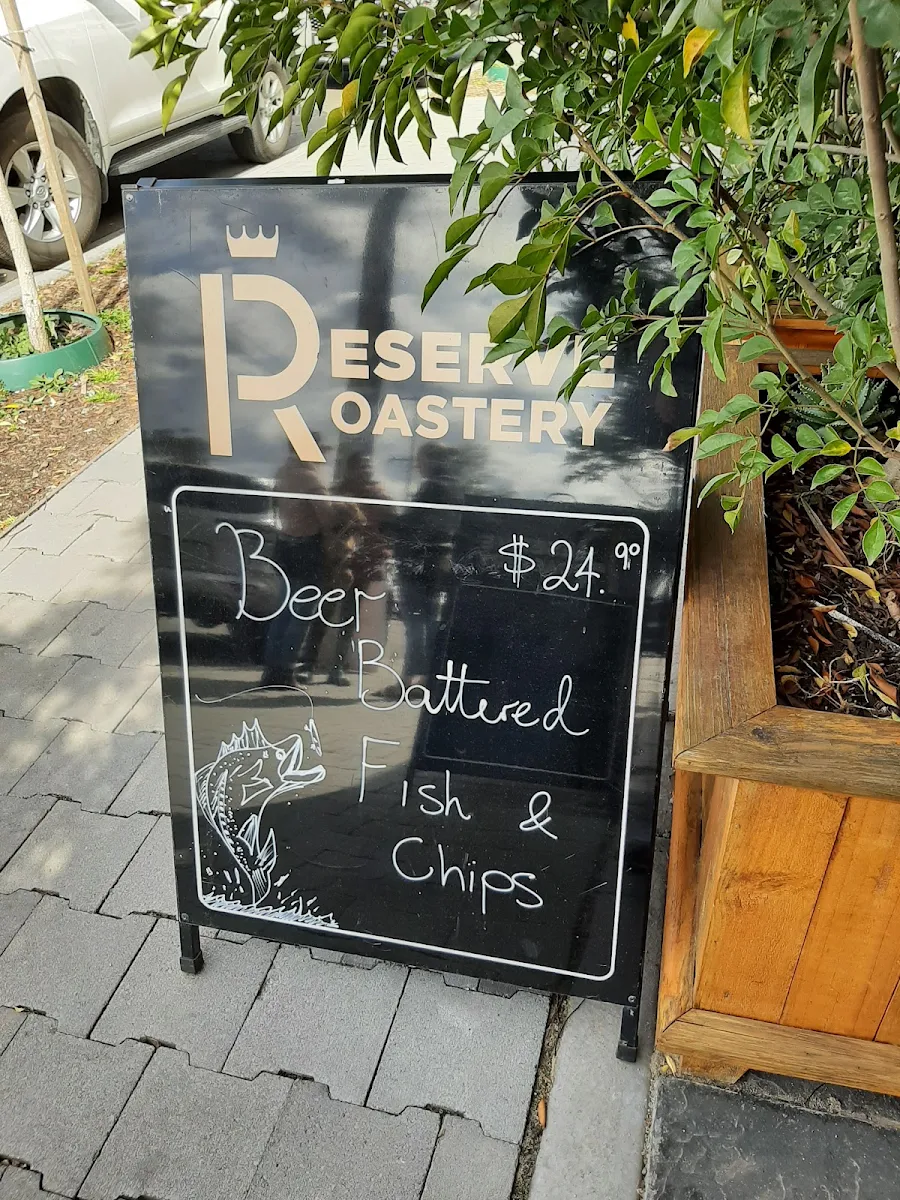 RESERVE
ROASTERY
Beer $24.90
Battered
Fish &
Chips